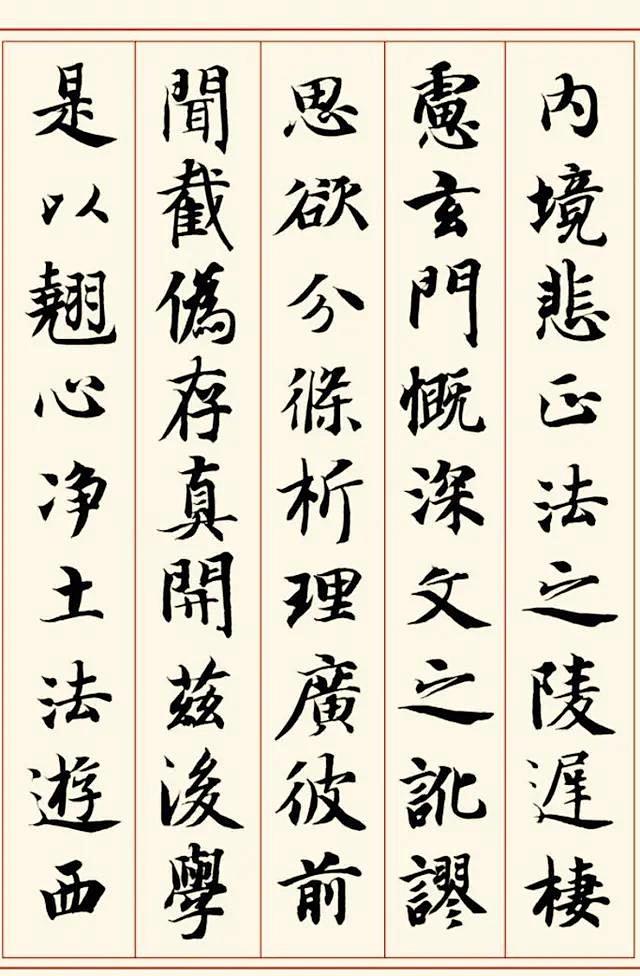 內境悲正法之陵遲棲
慮玄門慨深文之訛謬
思欲分條析理廣彼前
聞截偽存真開茲後學
是以翹心淨土法遊西